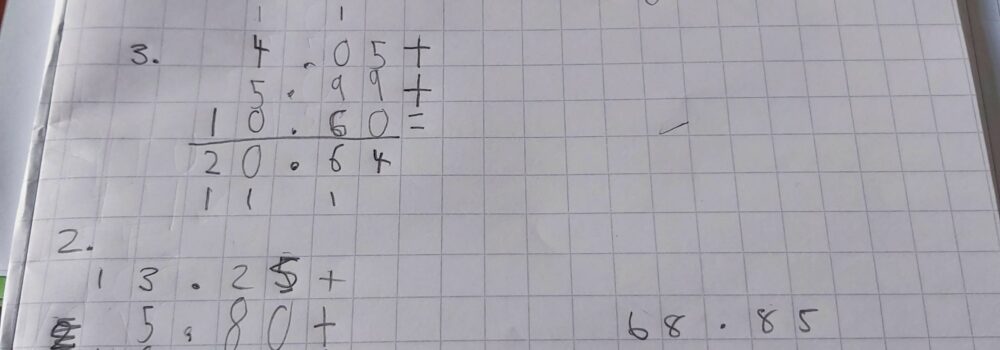 1 1
3. 4.05+
5.99+
10.60=
20.64
1 1 1
2.
13.25+
5.80+ 68.85